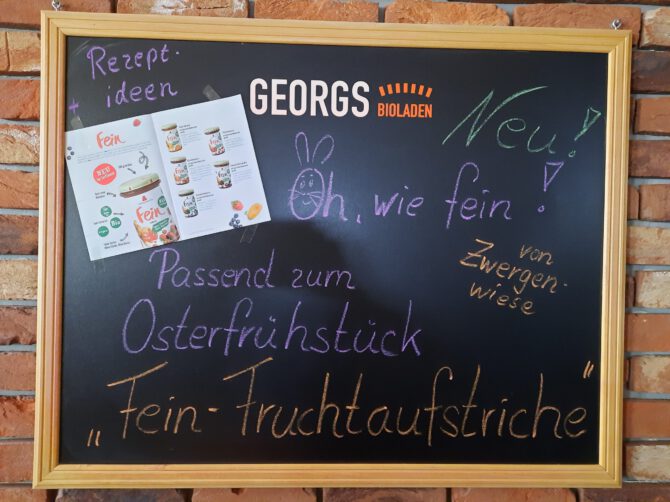 Rezept-
+ ideen
GEORGS BIOLADEN
Neu!
Oh, wie fein!
von
Zwergen-
wiese
Fein
NEU
Fein
Bio
Passend zum
Osterfrühstück
„Fein-Fruchtaufstriche“